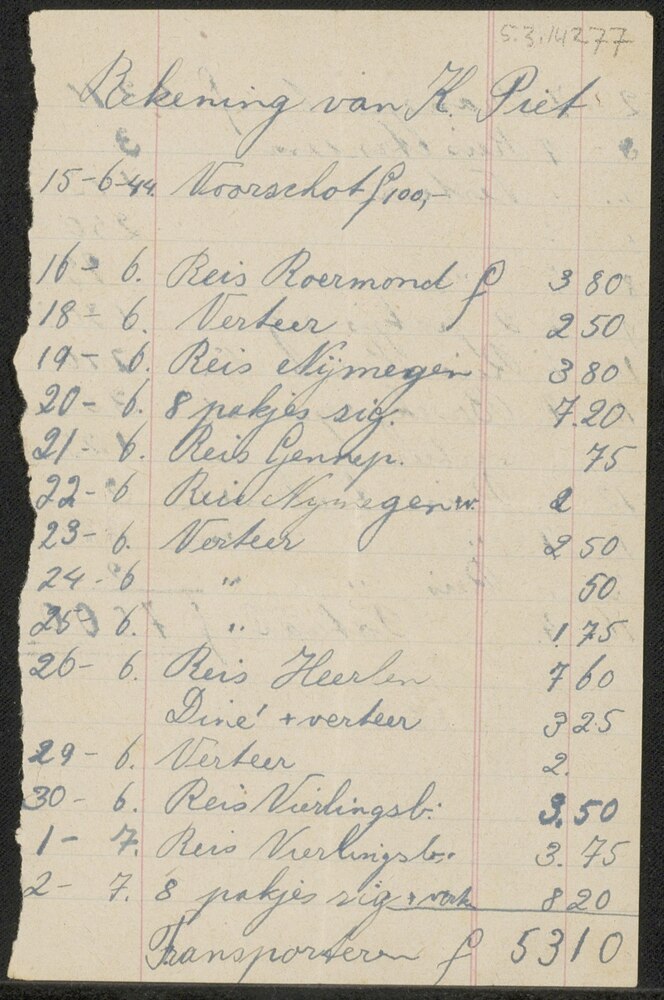 5.3.14277
Rekening van K. Piet
15-6-44. Voorschot f 100,-
16 - 6. Reis Roermond f 3 80
18 - 6. Verteer 2 50
19 - 6. Reis Nijmegen 3 80
20 - 6. 8 pakjes sig. 7.20
21 - 6. Reis Gennep. 75
22 - 6 Reis Nijmegen 2
23 - 6. Verteer 2 50
24 - 6 " 50
25 - 6. " 1.75
26 - 6. Reis Heerlen 7 60
Diné + verteer 3 25
29 - 6. Verteer 2.
30 - 6. Reis Vierlingsb: 3.50
1 - 7. Reis Vierlingsb: 3.75
2 - 7. 8 pakjes sig + 8 20
Transporteren f 53 10